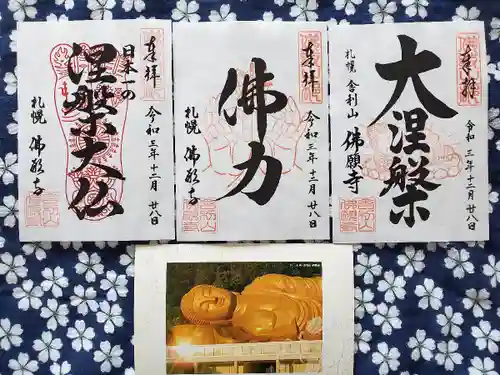 奉拝
日本一の
涅槃大仏
令和三年十二月廿八日
札幌 佛願寺
奉拝
佛力
令和三年十二月廿八日
札幌 佛願寺
奉拝
札幌 舎利山 佛願寺
大涅槃
令和三年十二月廿八日